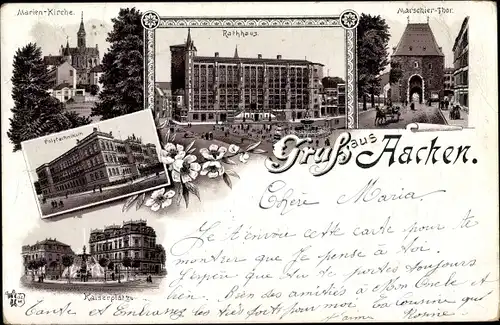 Marien-Kirche.
Rathhaus.
Marschier-Thor.
Polytechnikum
Gruß aus Aachen.
Kaiserplatz.
Chère Maria.
Je t'envoi cette carte pour te
montrer que je pense à toi
J'espère que tu te portes toujours
bien. Bien des amitiés à Mon Oncle et
Tante et Embrasse les très forts pour moi
t'aime